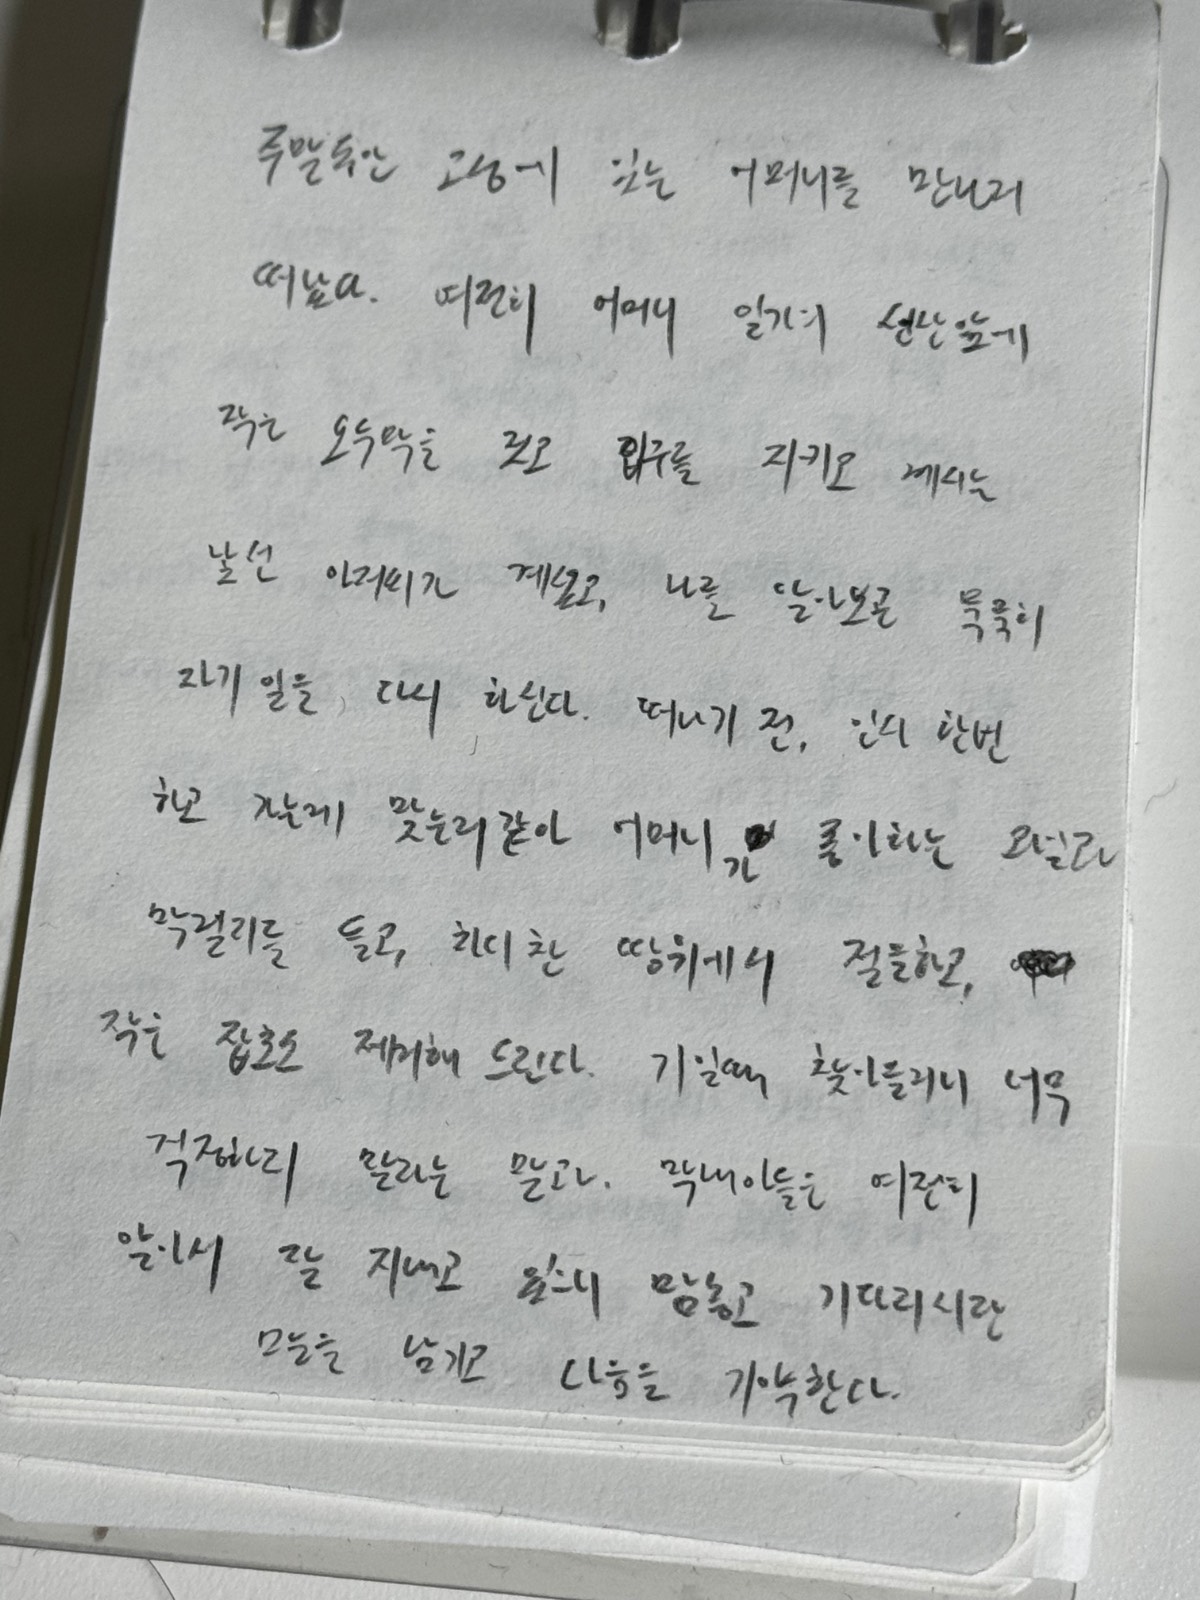 주말동안 고성에 있는 어머니를 만나러
떠났다. 여전히 어머니 일가의 선산앞에
작은 오두막을 짓고 입구를 지키고 계시는
낯선 아저씨가 계셨고, 나를 알아보곤 묵묵히
자기 일을 다시 하신다. 떠나기 전, 인사 한번
하고 가는게 맞는거같아 어머니가 좋아하는 과일과
막걸리를 들고, 차디 찬 땅위에서 절을하고,
작은 잡초도 제거해 드린다. 기일때 찾아올러니 너무
걱정하지 말라는 말과. 막내아들은 여전히
알아서 잘 지내고 있으니 맘놓고 기다리시란
말을 남기고 다음을 기약한다.